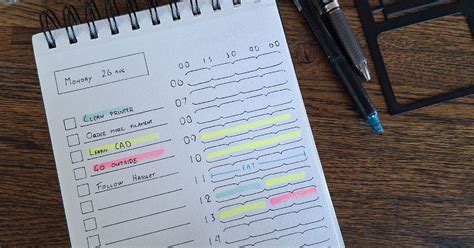 MONDAY 26 AUG
CLEAN PRINTER
ORDER MORE FILAMENT
LEARN CAD
GO OUTSIDE
FOLLOW
00 15 30 00
06
07
08
09
10
11 EAT
12
13